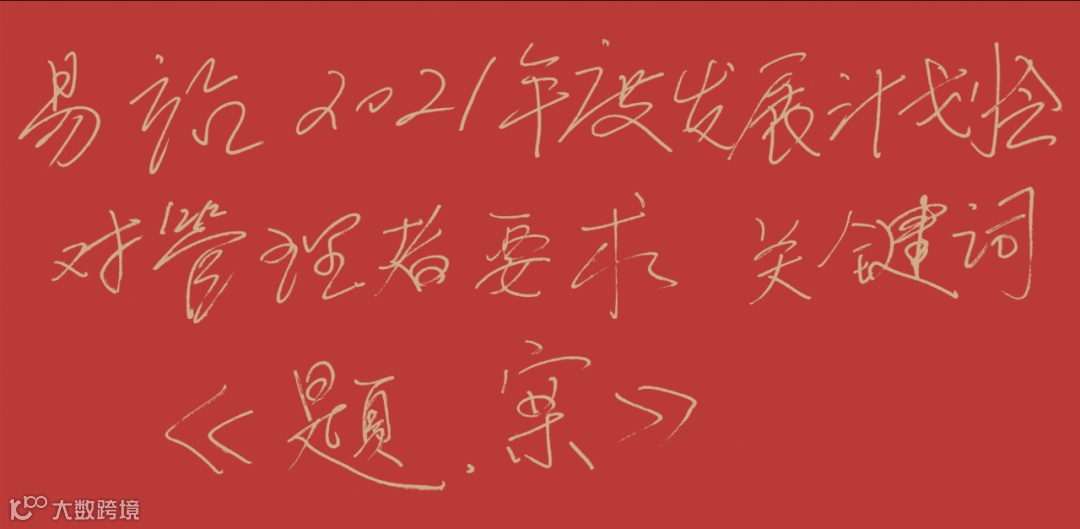 易诊 2021年度发展计划会
对管理者要求 关键词
《题、案》
大数跨境